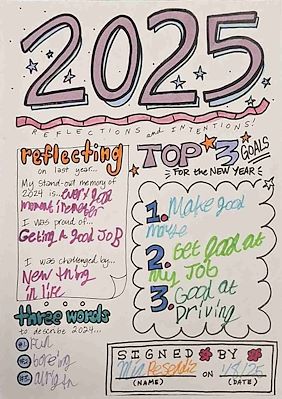 2025
REFLECTIONS and INTENTIONS!
reflecting
on last year...
My stand-out memory of
2024 is... every good
moment
I was proud of...
Getting A good JOB
I was challenged by...
New thing
in life
three words
to describe 2024...
#1 fun
#2
#3
TOP 3 GOALS
FOR the NEW YEAR
1. Make good
2. Get good at
My JOB
3. Good at
Driving
SIGNED BY
Mia ON 1/8/25
(NAME) (DATE)